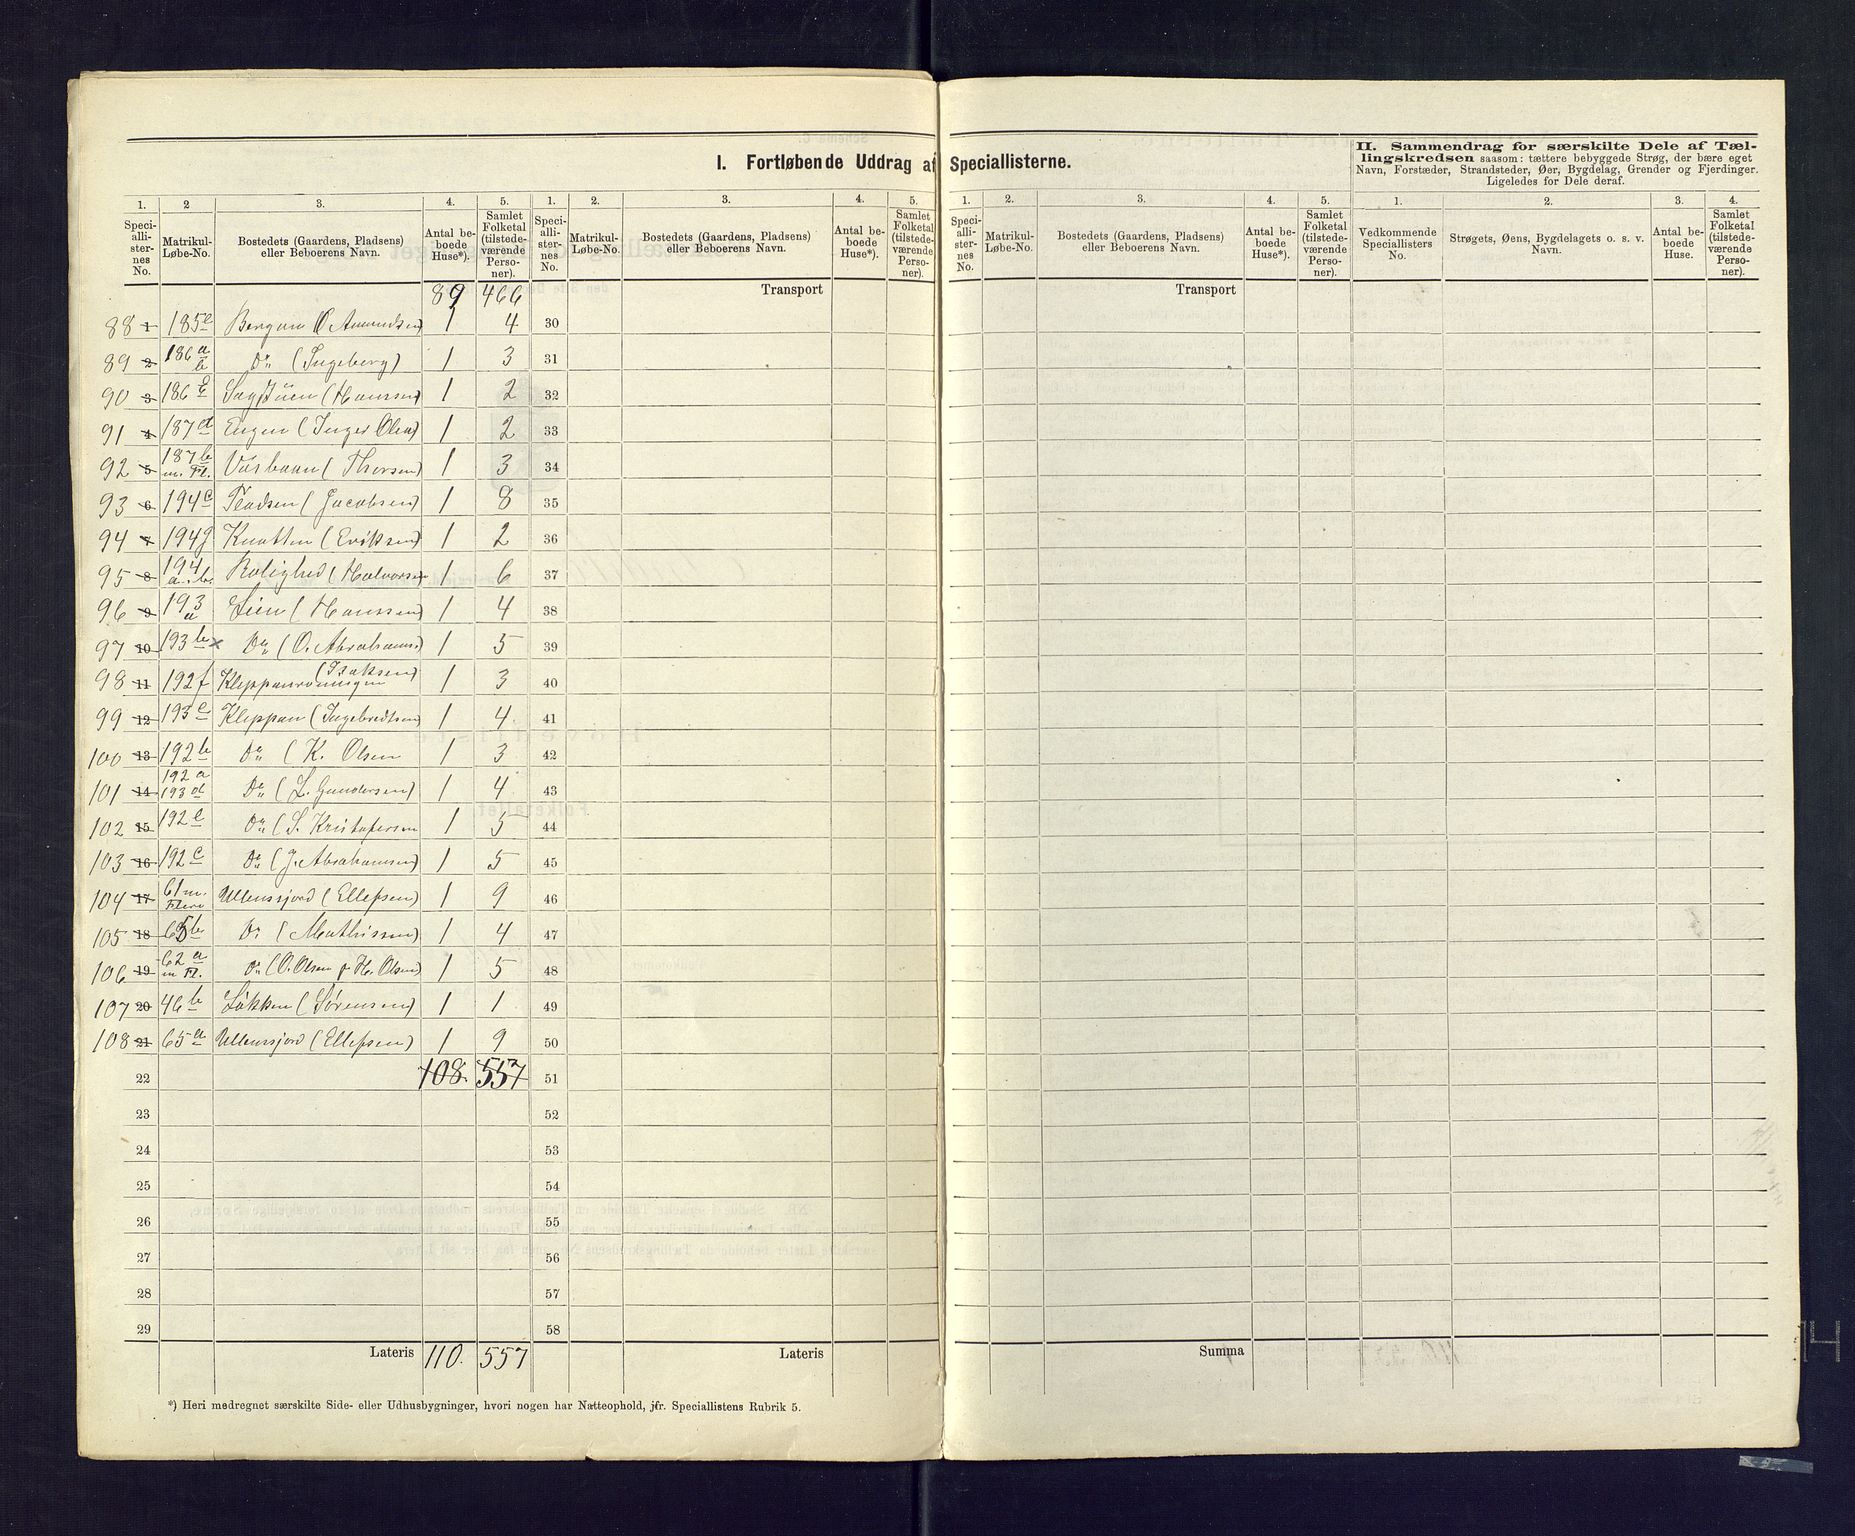 I. Fortløbende Uddrag af Speciallisterne.
II. Sammendrag for særskilte Dele af Tællingskredsen saasom: tættere bebyggede Strøg, der bære eget
Navn, Forstæder, Strandsteder, Øer, Bygdelag, Grender og Fjerdinger.
Ligeledes for Dele deraf.
1. 2 3. 4. 5. 1. 2. 3. 4. 5. 1. 2. 3. 4. 5. 1. 2. 3. 4.
Speciallisternes No. Matrikul-Løbe-No. Bostedets (Gaardens, Pladsens) eller Beboerens Navn. Antal beboede Huse*). Samlet Folketal (tilstedeværende Personer).
Speciallisternes No. Matrikul-Løbe-No. Bostedets (Gaardens, Pladsens) eller Beboerens Navn. Antal beboede Huse*). Samlet Folketal (tilstedeværende Personer).
Speciallisternes No. Matrikul-Løbe-No. Bostedets (Gaardens, Pladsens) eller Beboerens Navn. Antal beboede Huse*). Samlet Folketal (tilstedeværende Personer).
Vedkommende Speciallisters No. Strøgets, Øens, Bygdelagets o. s. v. Navn. Antal beboede Huse. Samlet Folketal (tilstedeværende Personer).
89 466 Transport Transport
88 1 185 e Bergan (O Amundsen) 1 4 30
89 2 186 a b Do (Ingeberg) 1 3 31
90 3 186 (Hanssen) 1 2 32
91 4 187 d Engen (Inger Olea) 1 2 33
92 5 187 b m. Fl. (Thorsen) 1 3 34
93 6 194 c (Jacobsen) 1 8 35
94 7 194 g Knatten (Eriksen) 1 2 36
95 8 194 a. b. Rolighed (Halvorsen 1 6 37
96 9 193 a Lien (Hanssen) 1 4 38
97 10 193 b x Do (O. Abrahams.) 1 5 39
98 11 192 f Kleppanrønningen (Isaksen) 1 3 40
99 12 193 c Kleppan (Ingebretsen) 1 4 41
100 13 192 b Do (K. Olsen 1 3 42
101 14 192 a 193 d Do (L. Gundersen) 1 4 43
102 15 192 e Do (S. Kristofersen 1 5 44
103 16 192 c Do (J. Abrahamsen) 1 5 45
104 17 61 m. Flere Ullenssjord (Ellefsen) 1 9 46
105 18 65 b Do (Mathissen) 1 4 47
106 19 62 a m Fl. Do (O. Olsen f H. Olsen) 1 5 48
107 20 46 b Løkken (Sørensen) 1 1 49
108 21 65 a Ullenssjord (Ellefsen) 1 9 50
22 108. 557 51
23 52
24 53
25 54
26 55
27 56
28 57
29 58
Lateris 110. 557 Lateris Summa
*) Heri medregnet særskilte Side- eller Udhusbygninger, hvori nogen har Natteophold, jfr. Speciallistens Rubrik 5.